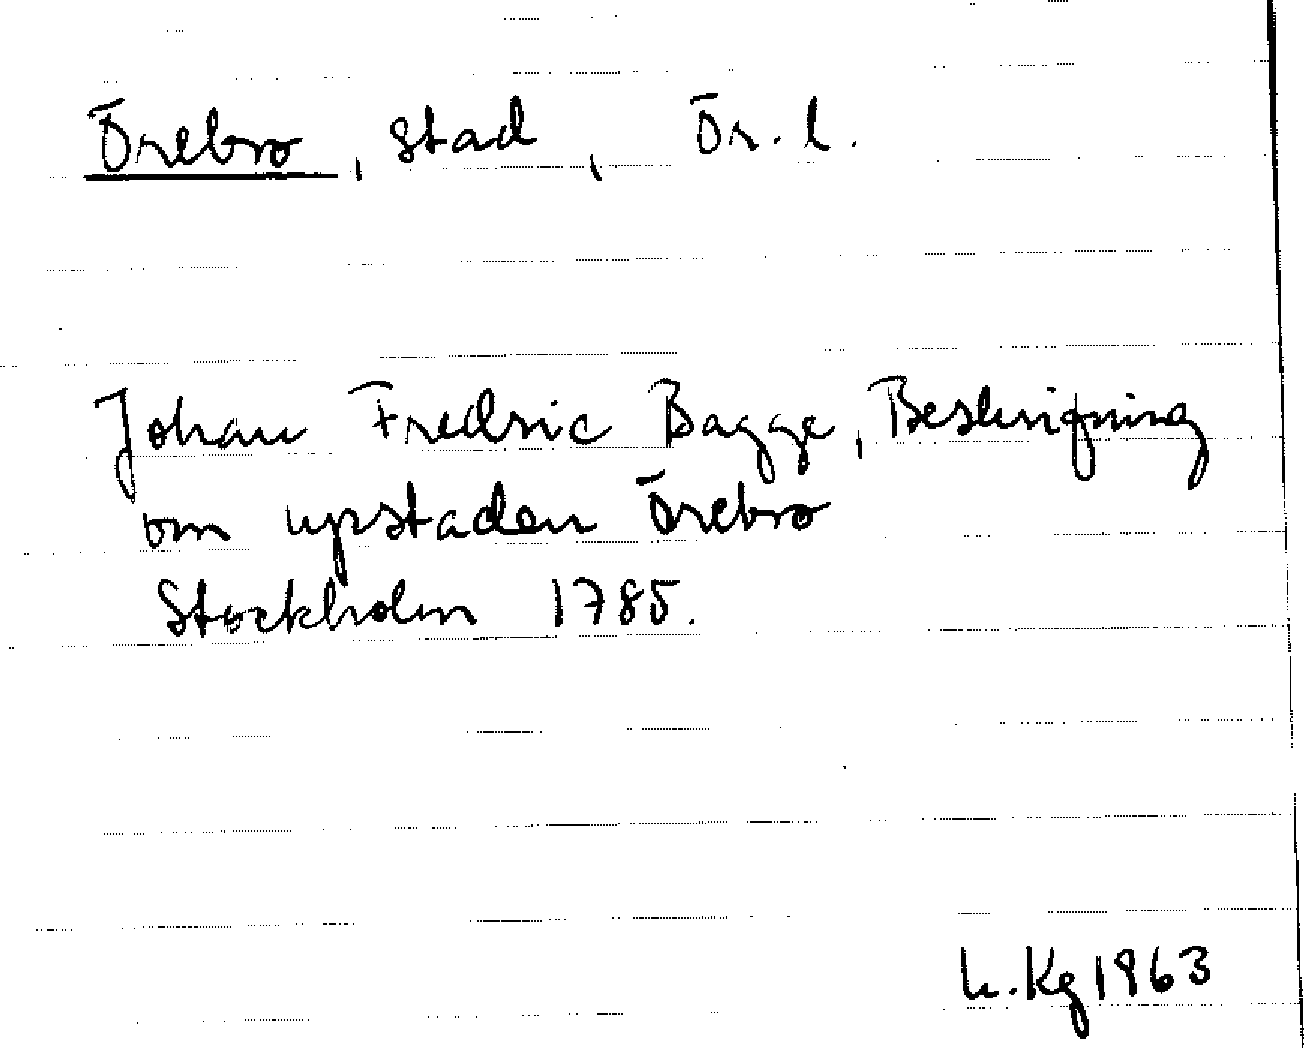 Örebro, stad, Ör. l.
Johan Fredric Bagge, Beskrifning
om upstaden Örebro
Stockholm 1785.
h. Kg 1963